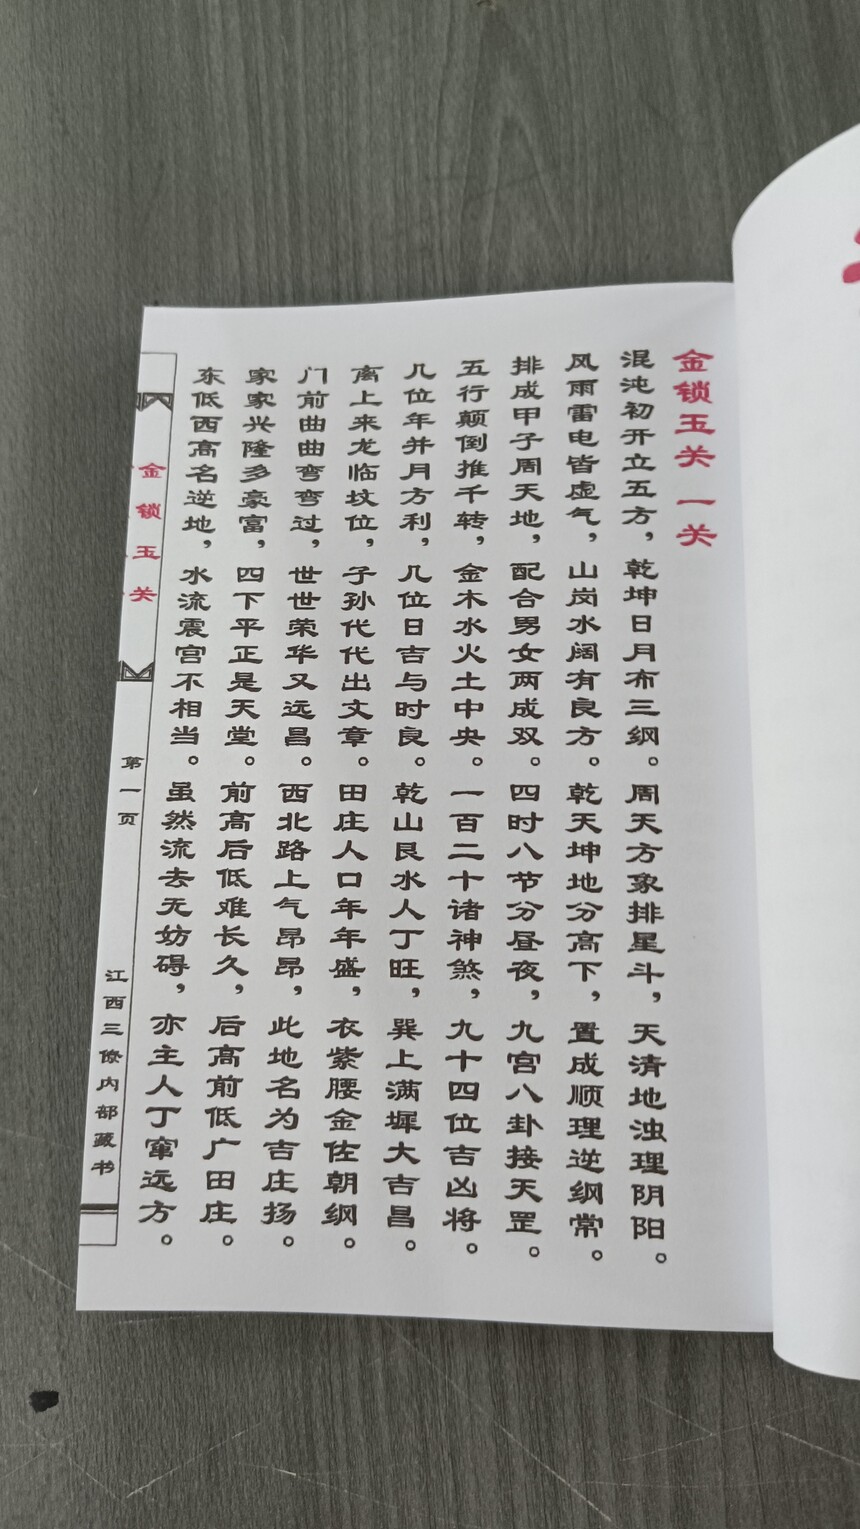 金锁玉关 一关
混沌初开立五方，乾坤日月布三纲。周天方象排星斗，天清地浊理阴阳。
风雨雷电皆虚气，山岗水阔有良方。乾天坤地分高下，置成顺理逆纲常。
排成甲子周天地，配合男女两成双。四时八节分昼夜，九宫八卦接天罡。
五行颠倒推千转，金木水火土中央。一百二十诸神煞，九十四位吉凶将。
几位年并月方利，几位日吉与时良。乾山艮水人丁旺，巽上满墀大吉昌。
离上来龙临坟位，子孙代代出文章。田庄人口年年盛，衣紫腰金佐朝纲。
门前曲曲弯弯过，世世荣华又远昌。西北路上气昂昂，此地名为吉庄扬。
家家兴隆多豪富，四下平正是天堂。前高后低难长久，后高前低广田庄。
东低西高名逆地，水流震宫不相当。虽然流去无妨碍，亦主人丁窜远方。
金锁玉关
第一页
江西三僚内部藏书